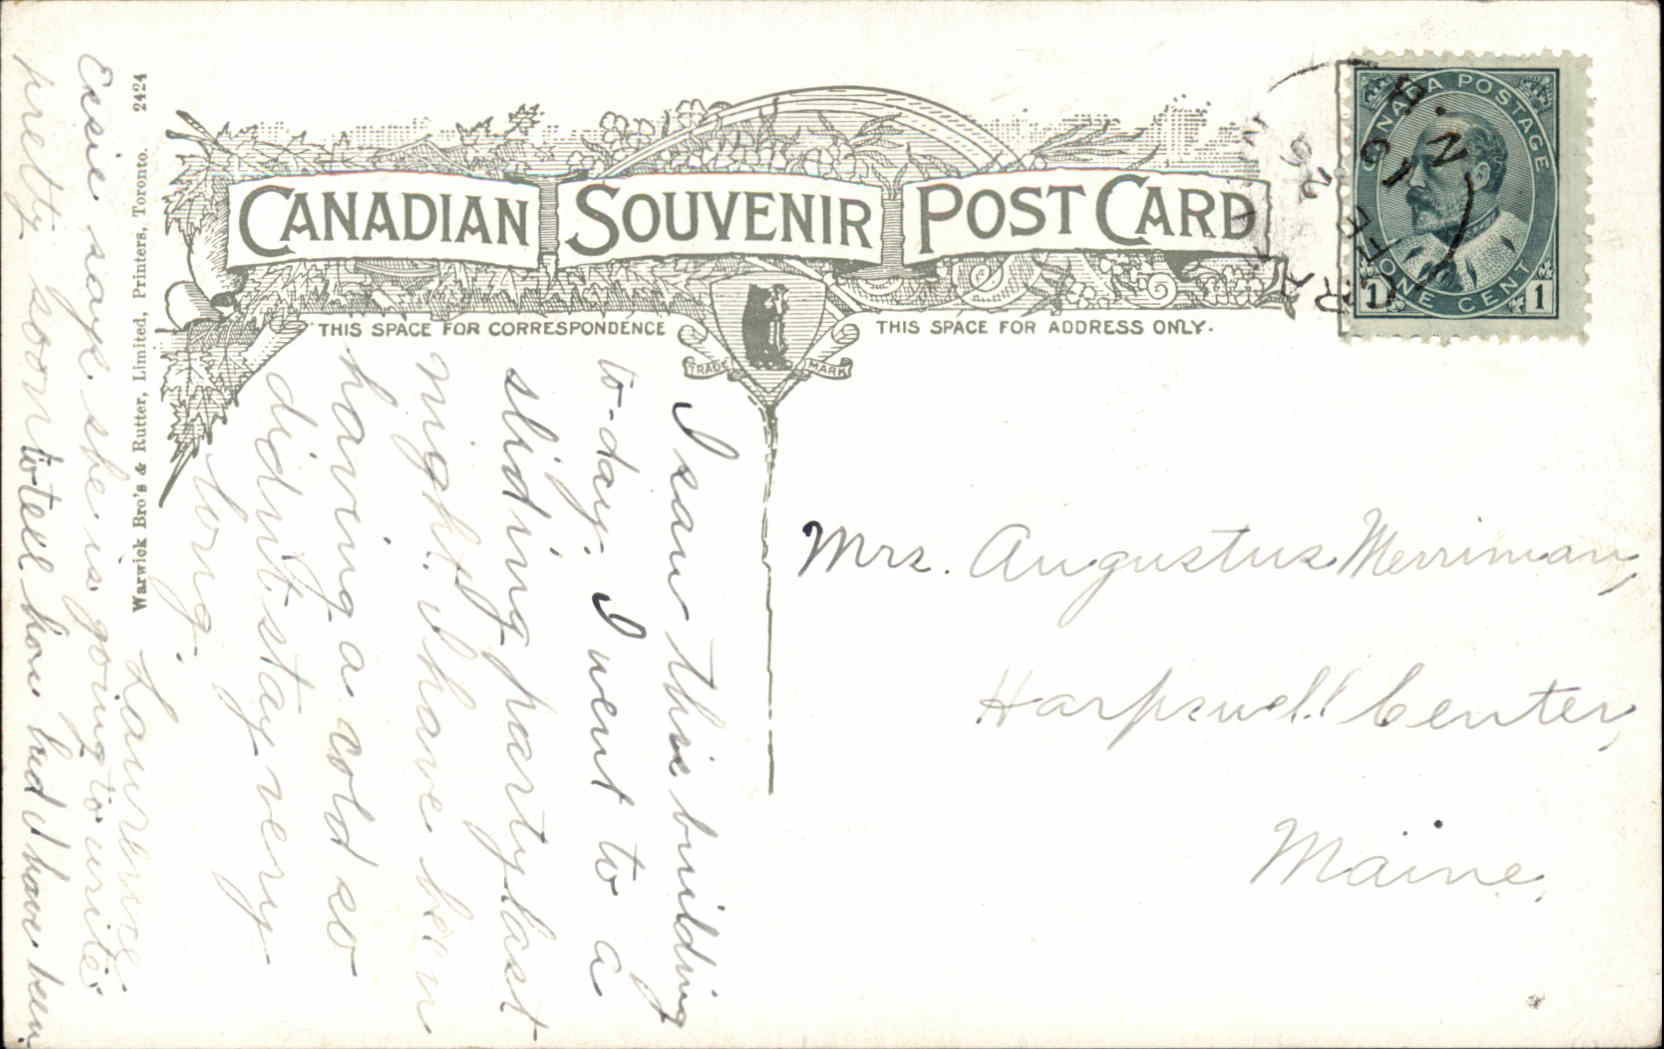 CANADIAN SOUVENIR POST CARD
THIS SPACE FOR CORRESPONDENCE
THIS SPACE FOR ADDRESS ONLY.
TRADE MARK
Warwick Bro's & Rutter, Limited, Printers, Toronto. 2424
CANADA POSTAGE
ONE CENT
1 1
N. B.
I saw this building
to-day. I went to a
sliding party last
night. I have been
having a cold so
didn't stay very
long.
Laurence.
Essie says she is going to write
pretty soon to tell how bad I have been.
Mrs. Augustus Merriman,
Harpswell Center,
Maine.